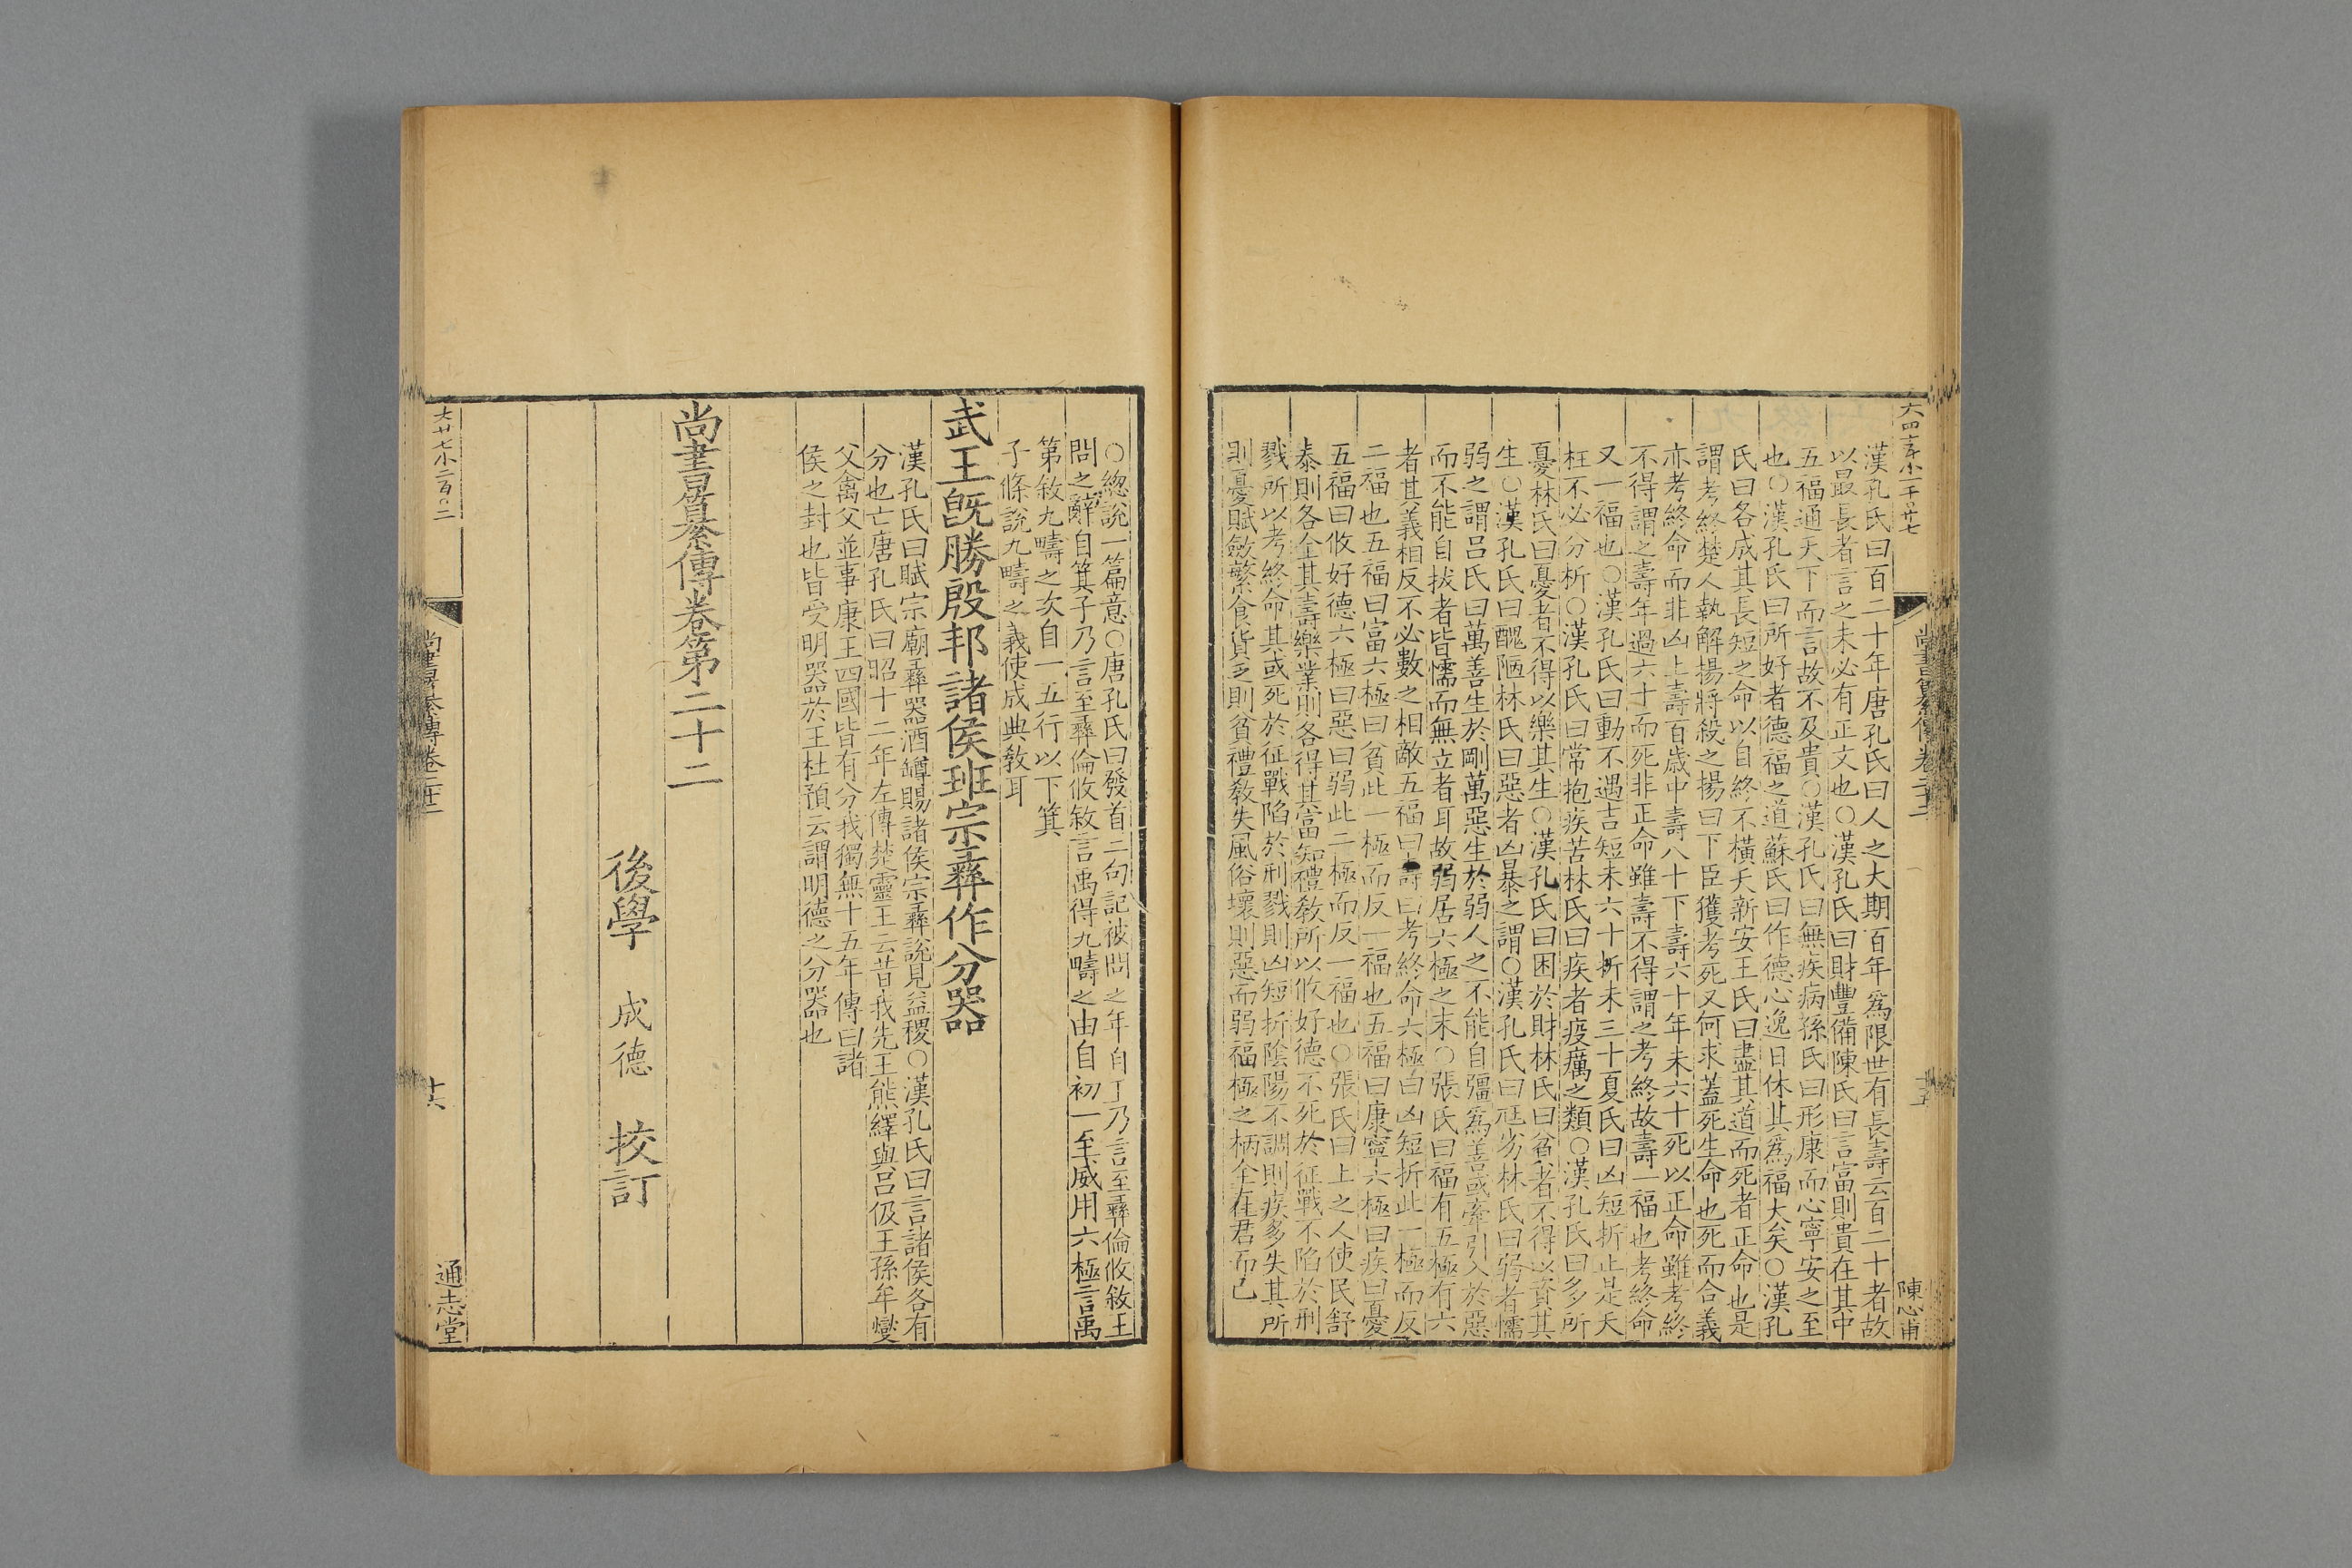 漢孔氏曰百二十年唐孔氏曰人之大期百年爲限世有長壽云百二十者故
以最長者言之未必有正文也○漢孔氏曰財豐備陳氏曰言富則貴在其中
五福通天下而言故不及貴○漢孔氏曰無疾病孫氏曰形康而心寧安之至
也○漢孔氏曰所好者德福之道蘇氏曰作德心逸日休其爲福大矣○漢孔
氏曰各成其長短之命以自終不橫夭新安王氏曰盡其道而死者正命也是
謂考終楚人執解揚將殺之揚曰下臣獲考死又何求蓋死生命也死而合義
亦考終命而非凶上壽百歲中壽八十下壽六十年未六十死以正命雖考終
不得謂之壽年過六十而死非正命雖壽不得謂之考終故壽一福也考終命
又一福也○漢孔氏曰動不遇吉短未六十折未三十夏氏曰凶短折止是夭
枉不必分析○漢孔氏曰常抱疾苦林氏曰疾者疫癘之類○漢孔氏曰多所
憂林氏曰憂者不得以樂其生○漢孔氏曰困於財林氏曰貧者不得以資其
生○漢孔氏曰醜陋林氏曰惡者凶暴之謂○漢孔氏曰尫劣林氏曰弱者懦
弱之謂呂氏曰萬善生於剛萬惡生於弱人之不能自彊爲善或牽引入於惡
而不能自拔者皆懦而無立者耳故弱居六極之末○張氏曰福有五極有六
者其義相反不必數之相敵五福曰壽曰考終命六極曰凶短折此一極而反
二福也五福曰富六極曰貧此一極而反一福也五福曰康寧六極曰疾曰憂
五福曰攸好德六極曰惡曰弱此二極而反一福也○張氏曰上之人使民舒
泰則各全其壽樂業則各得其富知禮敎所以攸好德不死於征戰不陷於刑
戮所以考終命其或死於征戰陷於刑戮則凶短折陰陽不調則疾多失其所
則憂賦斂繁食貨乏則貧禮敎失風俗壞則惡而弱福極之柄全在君而已
陳心甫
○緫說一篇意○唐孔氏曰發首二句記被問之年自王乃言至彝倫攸敘王
問之辭自箕子乃言至彝倫攸敘言禹得九疇之由自初一至威用六極言禹
第敘九疇之次自一五行以下箕
子條說九疇之義使成典敎耳
武王旣勝殷邦諸侯班宗彝作分器
漢孔氏曰賦宗廟彝器酒罇賜諸侯宗彝說見益稷○漢孔氏曰言諸侯各有
分也亡唐孔氏曰昭十二年左傳楚靈王云昔我先王熊繹與呂伋王孫牟燮
父禽父並事康王四國皆有分我獨無十五年傳曰諸
侯之封也皆受明器於王杜預云謂明德之分器也
尚書纂傳卷第二十二
後學 成德 挍訂
大廿七小二百〇二
尚書纂傳卷二十二
十六
通志堂